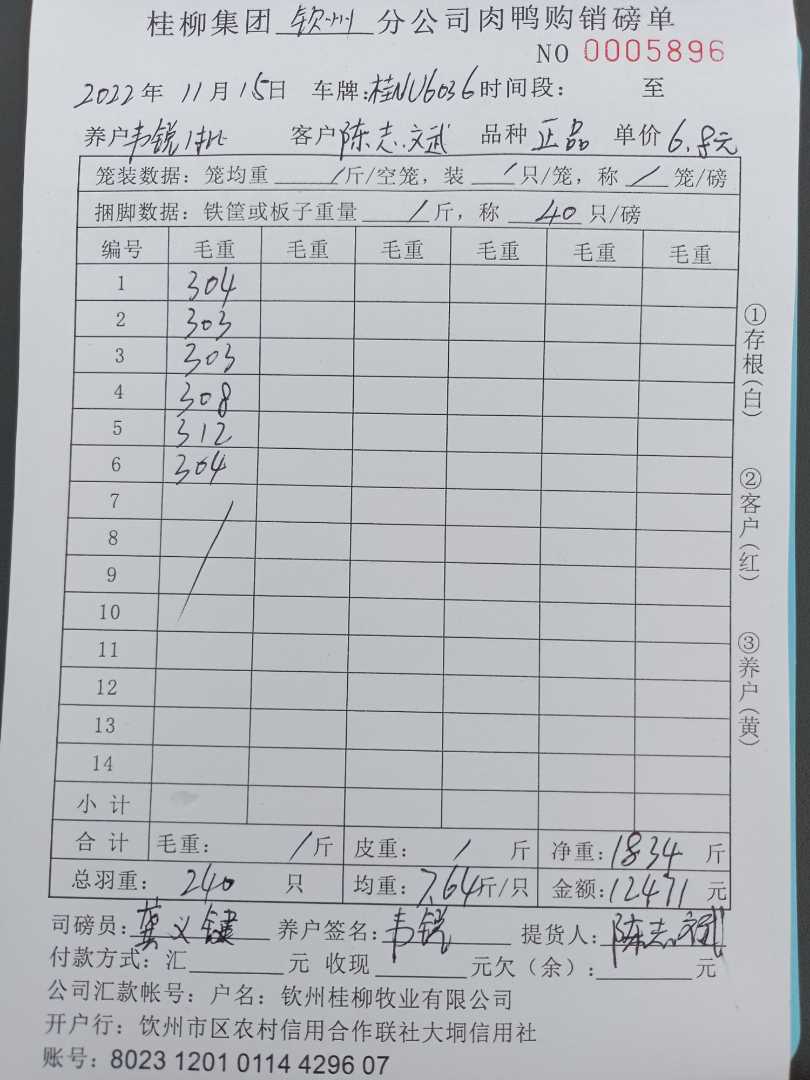 桂柳集团 钦州 分公司肉鸭购销磅单
NO 0005896
2022年 11月 15日 车牌:桂NU6036 时间段: 至
养户 韦锐 客户 陈志斌 品种 正品 单价 6.8元
笼装数据: 笼均重 / 斤/空笼, 装 / 只/笼, 称 / 笼/磅
捆脚数据: 铁筐或板子重量 / 斤, 称 40 只/磅
编号 毛重 毛重 毛重 毛重 毛重 毛重
1 304
2 303
3 303
4 308
5 312
6 304
7
8
9
10
11
12
13
14
小计
合计 毛重: / 斤 皮重: / 斤 净重: 1834 斤
总羽重: 240 只 均重: 7.64 斤/只 金额: 12471 元
司磅员: 义键 养户签名: 韦锐 提货人: 陈志斌
付款方式: 汇 元 收现 元欠(余): 元
公司汇款帐号: 户名: 钦州桂柳牧业有限公司
开户行: 钦州市区农村信用合作联社大垌信用社
账号: 8023 1201 0114 4296 07
①存根(白)
②客户(红)
③养户(黄)